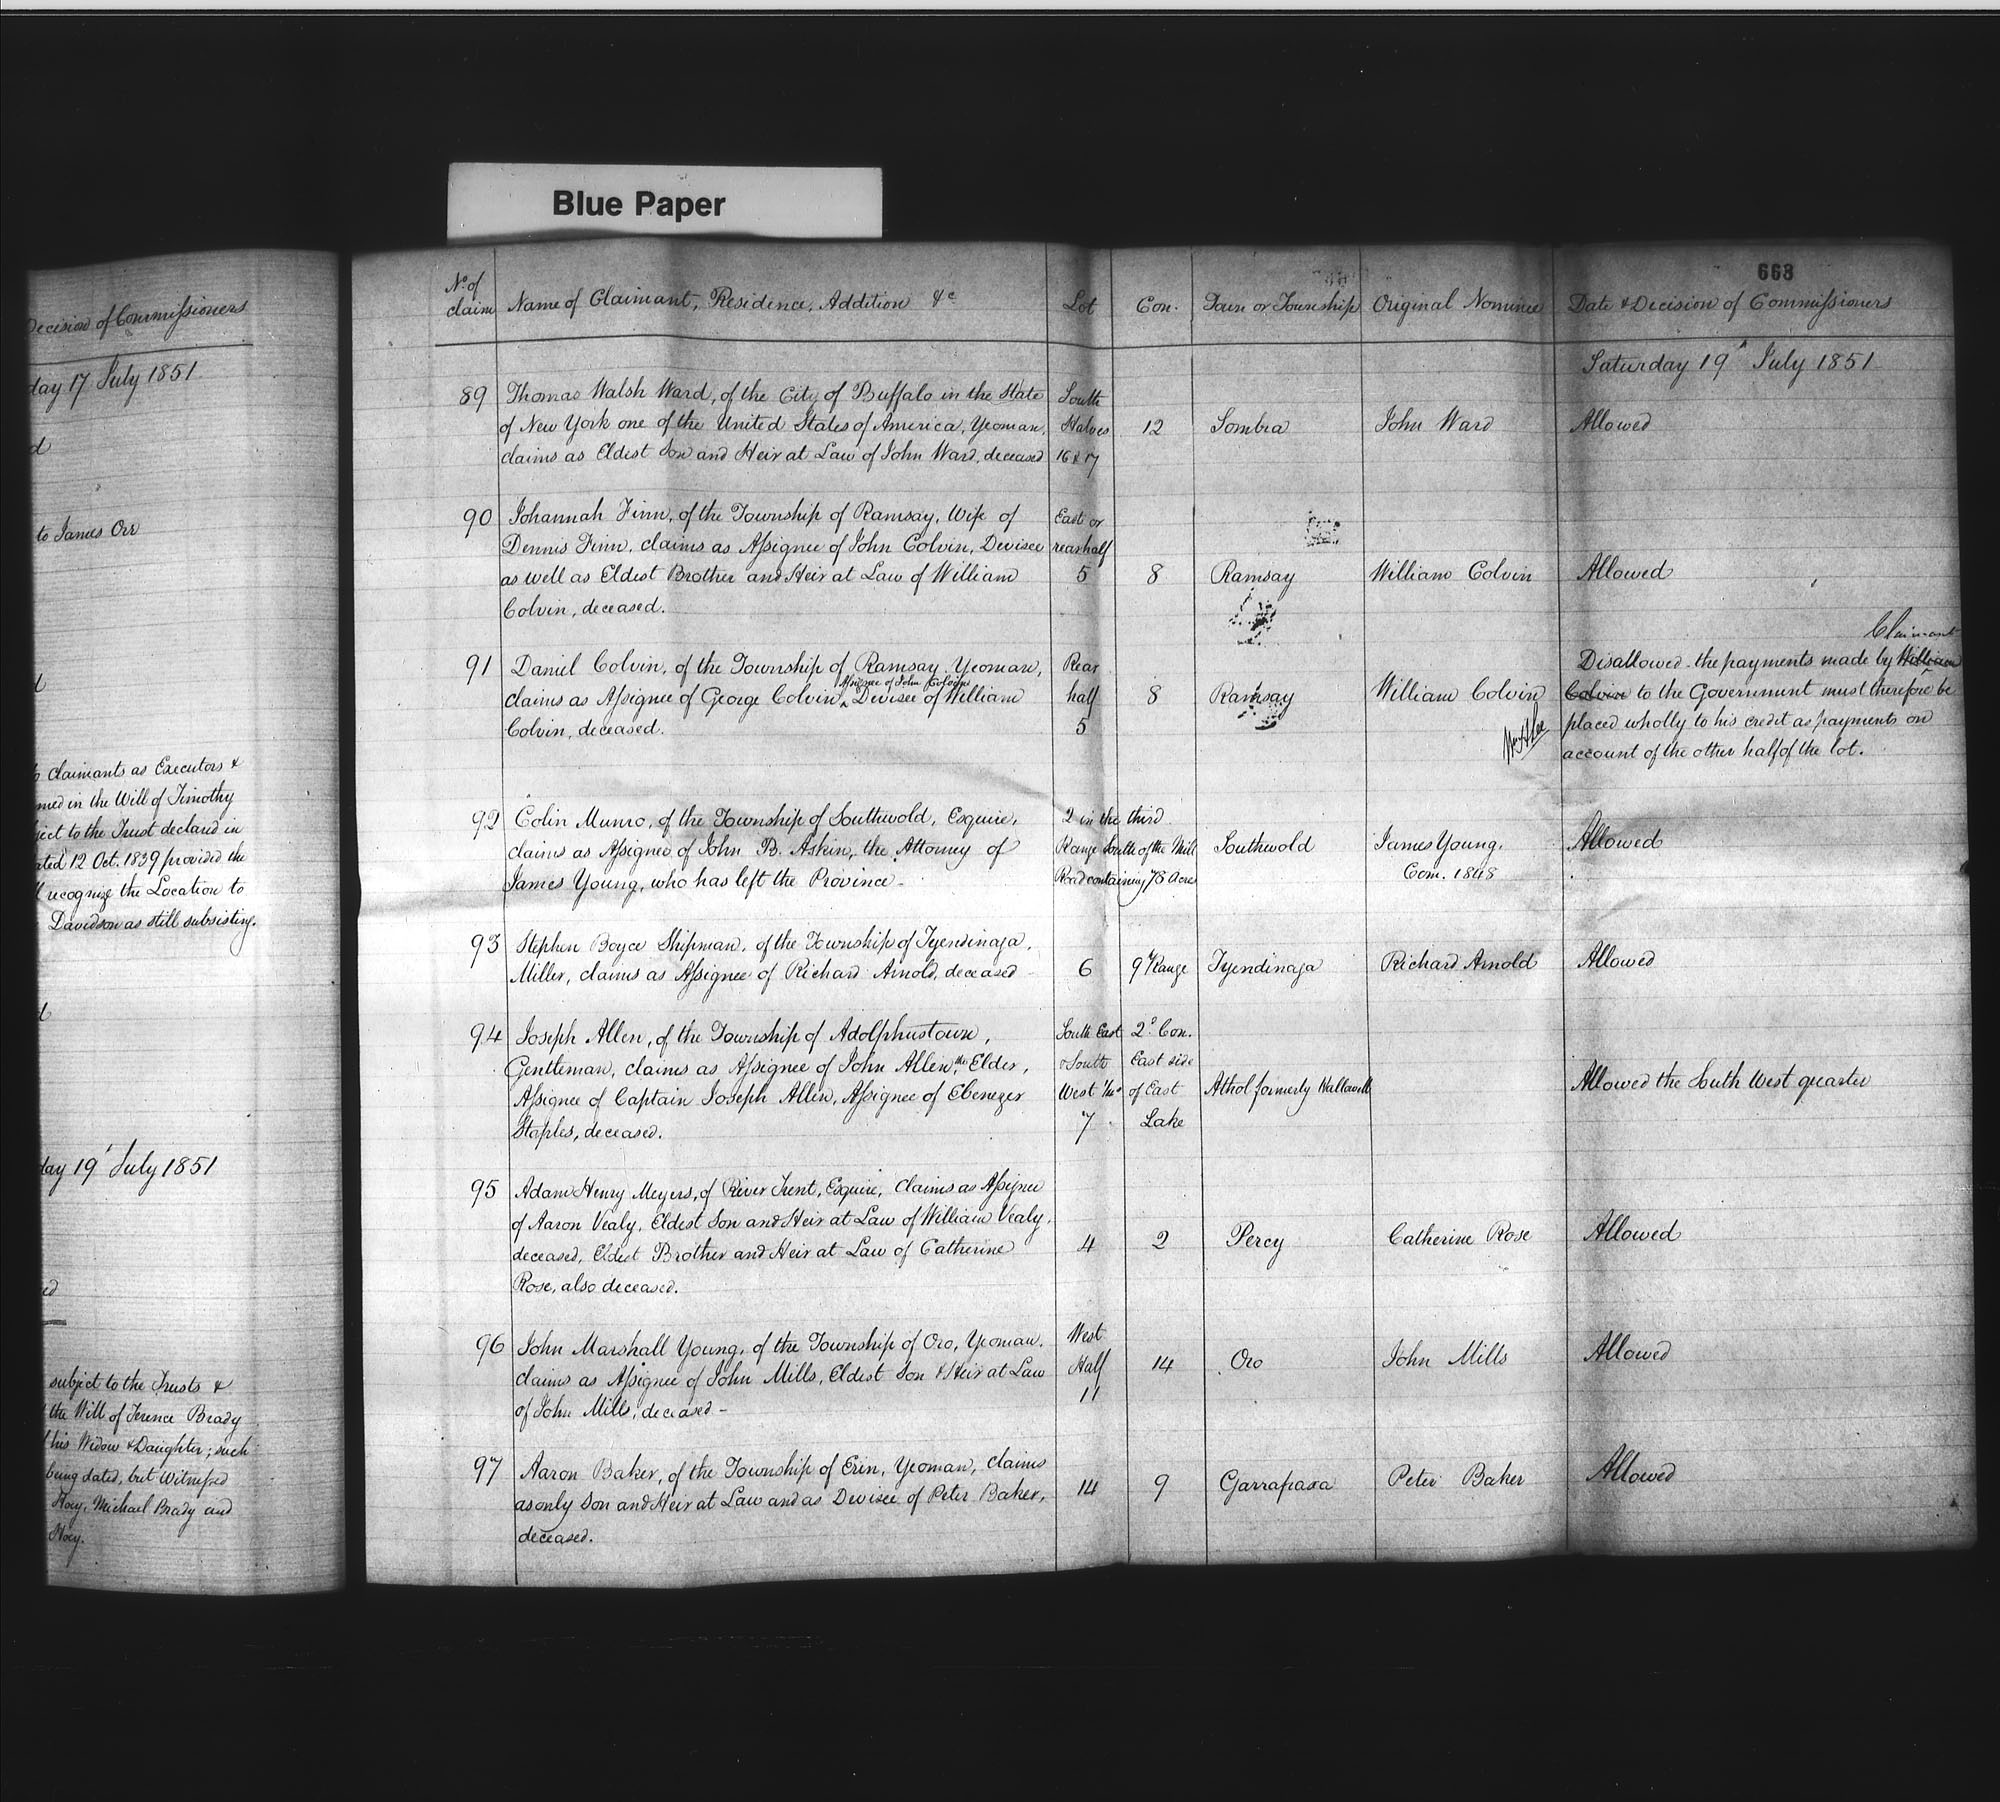 Blue Paper
Decision of Commissioners
day 17 July 1851
d
to James Orr
claimants as Executors &
med in the Will of Timothy
ject to the Trust declared in
ated 12 Oct. 1839 provided the
recognize the Location to
Davidson as still subsisting.
day 19' July 1851
ed
subject to the Trusts &
the Will of Terence Brady
his Widow & Daughter; such
being dated, but Witnessed
Hoey, Michael Brady and
Hoey.
668
No of claim Name of Claimant, Residence, Addition &c Lot Con. Town or Township Original Nominee Date & Decision of Commissioners
Saturday 19th July 1851
89 Thomas Walsh Ward, of the City of Buffalo in the State South
of New York one of the United States of America, Yeoman, Halves 12 Sombra John Ward Allowed
claims as Eldest Son and Heir at Law of John Ward, deceased 16 & 17
90 Johannah Finn, of the Township of Ramsay, Wife of East or
Dennis Finn, claims as Assignee of John Colvin, Devisee rear half
as well as Eldest Brother and Heir at Law of William 5 8 Ramsay William Colvin Allowed
Colvin, deceased.
Claimant
91 Daniel Colvin, of the Township of Ramsay, Yeoman, Rear Disallowed - the payments made by William
Assignee of John Colvin
claims as Assignee of George Colvin, Devisee of William half 8 Ramsay William Colvin Colvin to the Government must therefore be
Colvin, deceased. 5 placed wholly to his credit as payments on
account of the other half of the lot.
92 Colin Munro, of the Township of Southwold, Esquire, 2 in the third
claims as Assignee of John B. Askin, the Attorney of Range South of the Mill Southwold James Young. Allowed
James Young, who has left the Province - Road containing 78 Acres Com. 1848
93 Stephen Boyce Shipman, of the Township of Tyendinaga,
Miller, claims as Assignee of Richard Arnold, deceased 6 9' Range Tyendinaga Richard Arnold Allowed
94 Joseph Allen, of the Township of Adolphustown, South East 2d Con.
Gentleman, claims as Assignee of John Allen, the Elder, & South East side
Assignee of Captain Joseph Allen, Assignee of Ebenezer West of East Athol formerly Allowed the South West quarter
Staples, deceased. 7 Lake
95 Adam Henry Meyers, of River Trent, Esquire, claims as Assignee
of Aaron Vealy, Eldest Son and Heir at Law of William Vealy,
deceased, Eldest Brother and Heir at Law of Catherine 4 2 Percy Catherine Rose Allowed
Rose, also deceased.
96 John Marshall Young, of the Township of Oro, Yeoman, West
claims as Assignee of John Mills, Eldest Son & Heir at Law Half 14 Oro John Mills Allowed
of John Mills, deceased - 11
97 Aaron Baker, of the Township of Erin, Yeoman, claims
as only Son and Heir at Law and as Devisee of Peter Baker, 14 9 Garrafraxa Peter Baker Allowed
deceased.